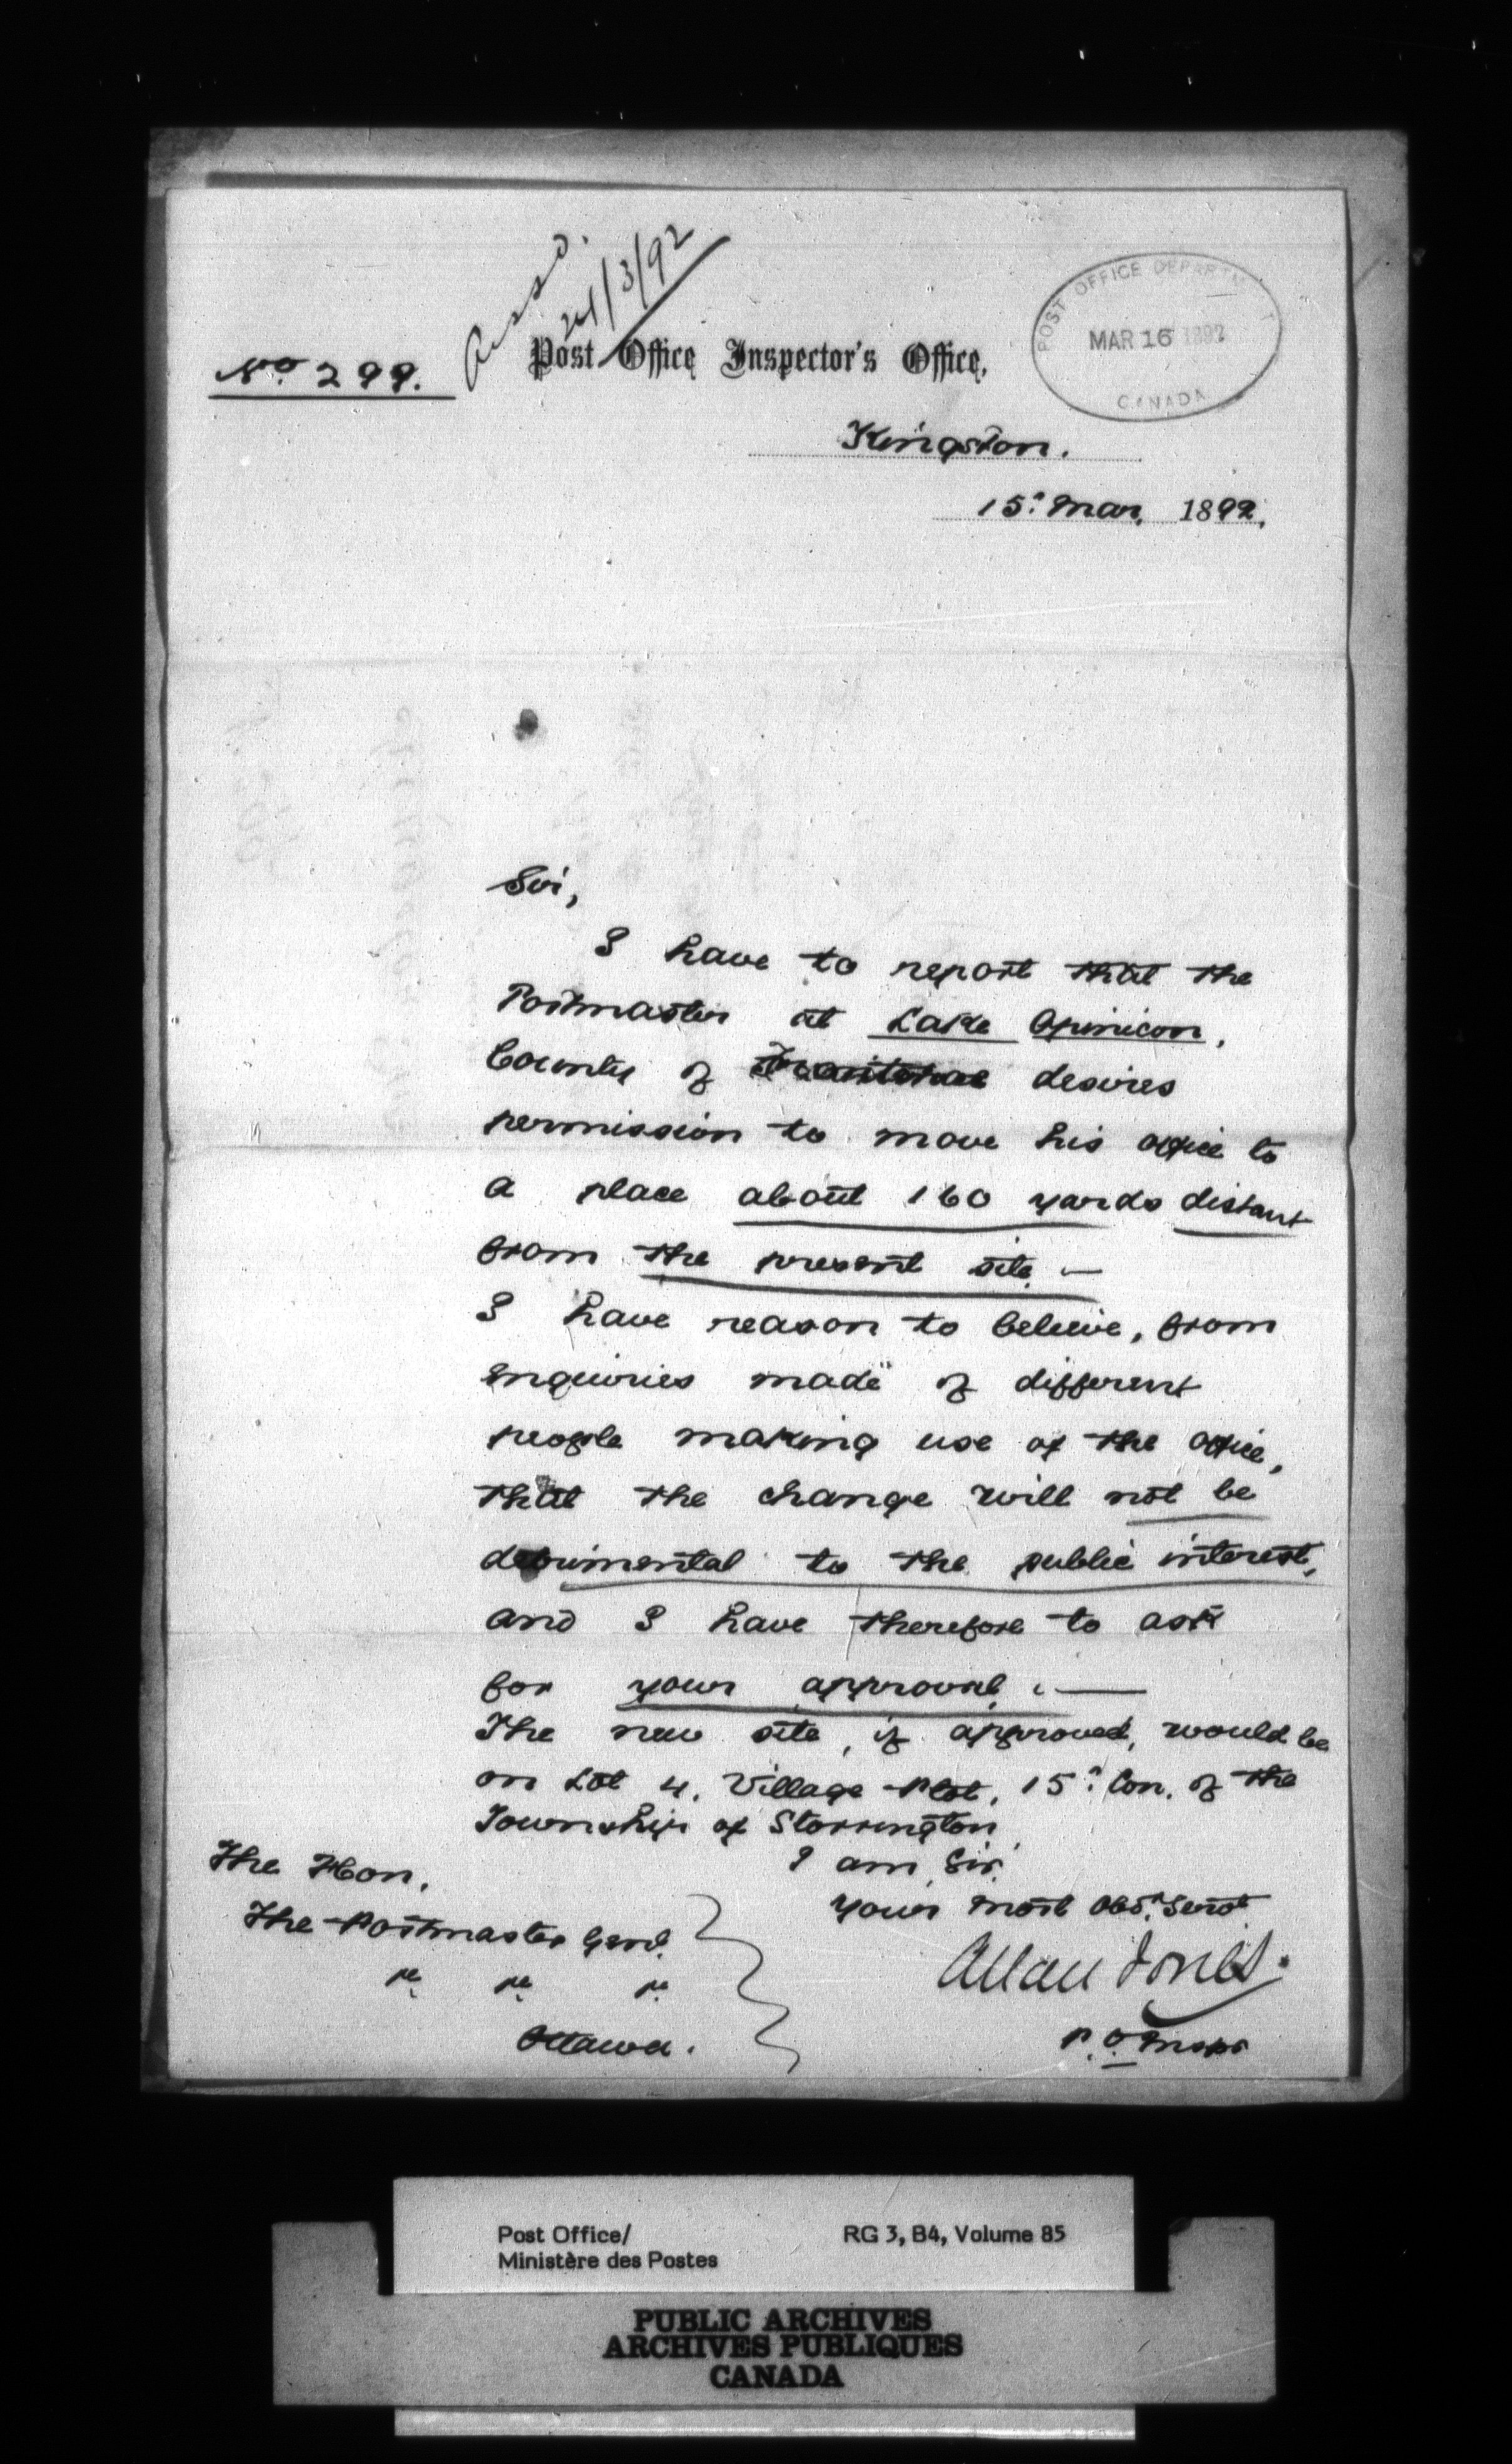 24/3/92
No. 299.
Post Office Inspector's Office,
POST OFFICE DEPARTM T
MAR 16 1892
CANADA
Kingston.
15: Mar, 1892.
Sir,
I have to report that the
Postmaster at Lake Opinicon,
County of desires
permission to move his office to
a place about 160 yards distant
from the present site. —
I have reason to believe, from
enquiries made of different
people making use of the office,
that the change will not be
detrimental to the public interest,
and I have therefore to ask
for your approval. —
The new site, if approved, would be
on Lot 4, Village Plot, 15: Con. of the
Township of Storrington
I am, Sir,
Your most Obt. Servt
The Hon,
The Postmaster Genl.
Ottawa.
Allan Jones.
P. O. Inspr
Post Office/
Ministère des Postes
RG 3, B4, Volume 85
PUBLIC ARCHIVES
ARCHIVES PUBLIQUES
CANADA